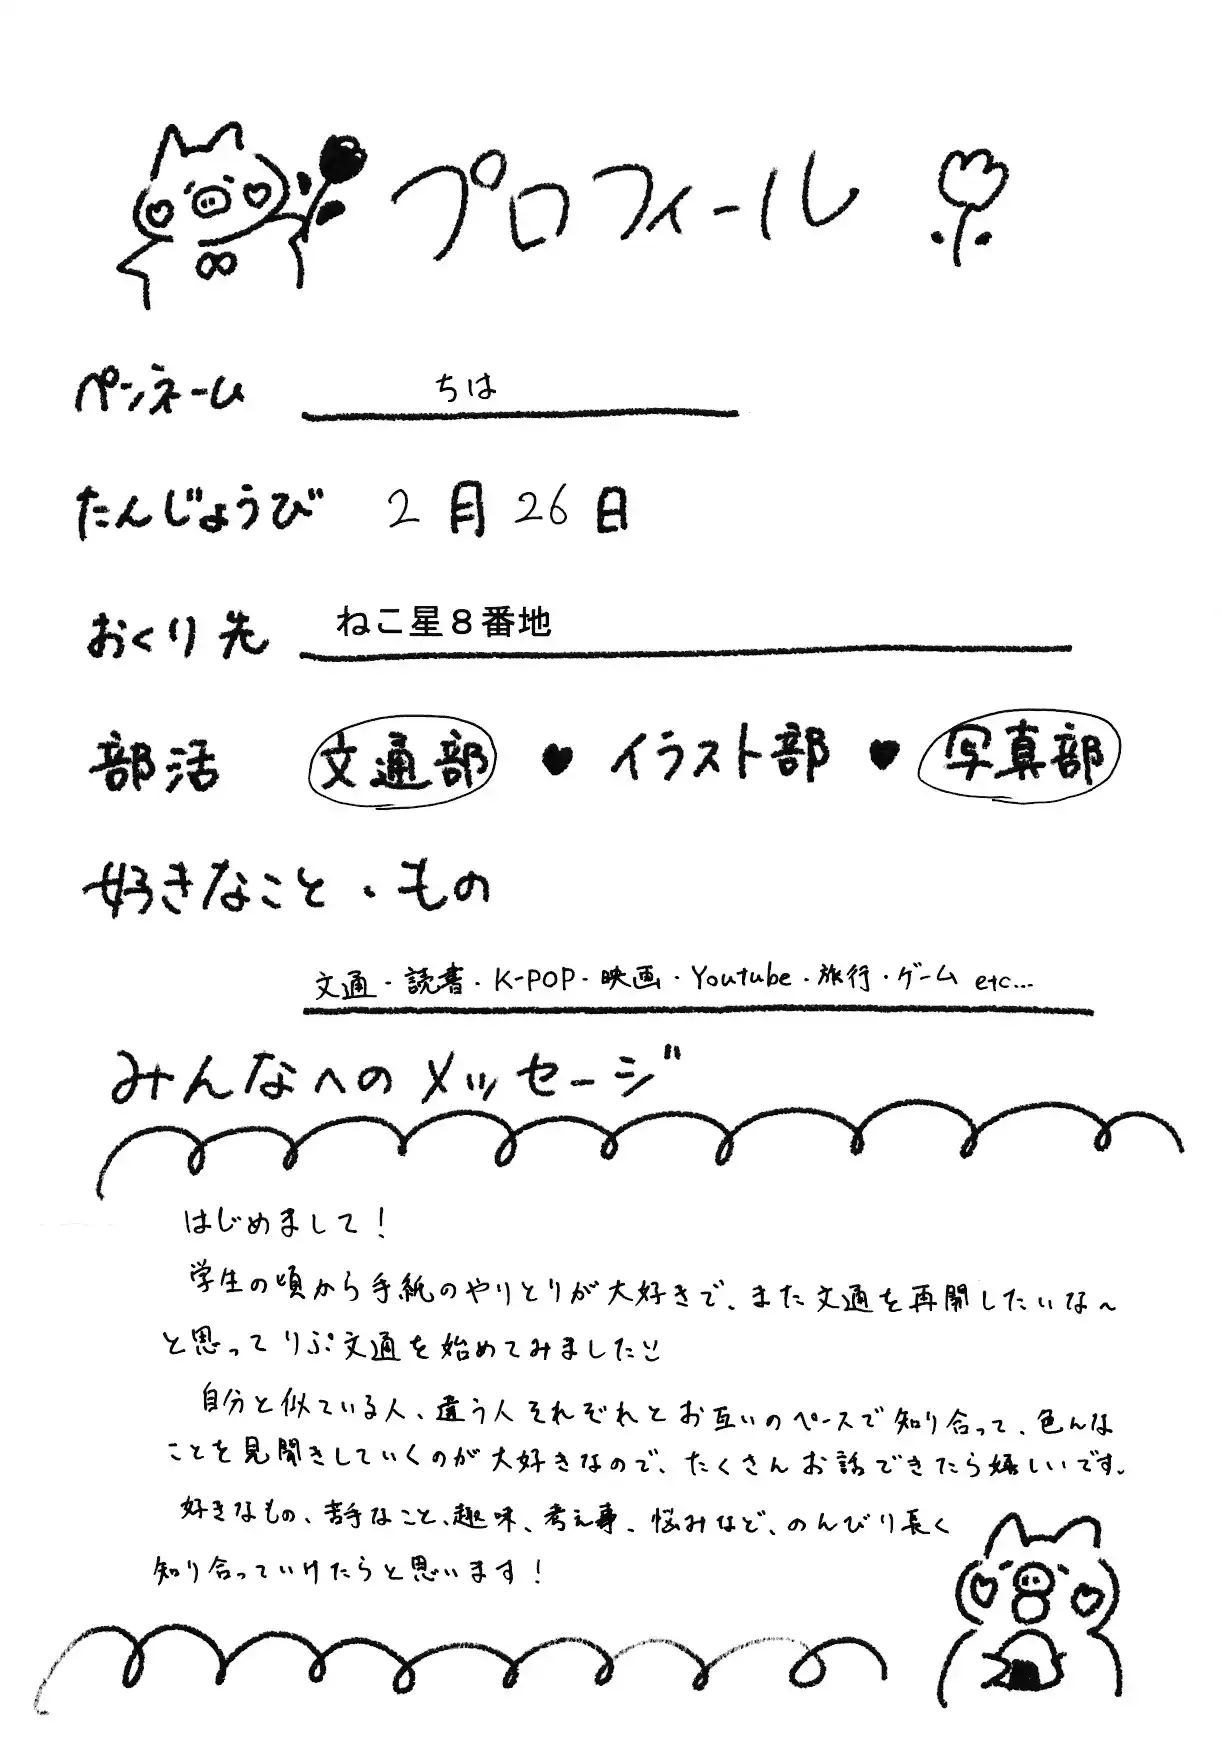 プロフィール
ペンネーム ちは
たんじょうび 2月26日
おくり先 ねこ星８番地
部活 文通部 ♥ イラスト部 ♥ 写真部
好きなこと・もの
文通・読書・K-POP・映画・Youtube・旅行・ゲーム etc...
みんなへのメッセージ
はじめまして！
学生の頃から手紙のやりとりが大好きで、また文通を再開したいな〜
と思ってりぷ文通を始めてみました
自分と似ている人、違う人それぞれとお互いのペースで知り合って、色んな
ことを見聞きしていくのが大好きなので、たくさんお話できたら嬉しいです。
好きなもの、苦手なこと、趣味、考え事、悩みなど、のんびり長く
知り合っていけたらと思います！